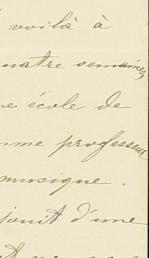 voilà à
quatre semaines,
école de
comme professeur
musique.
jouit d'une